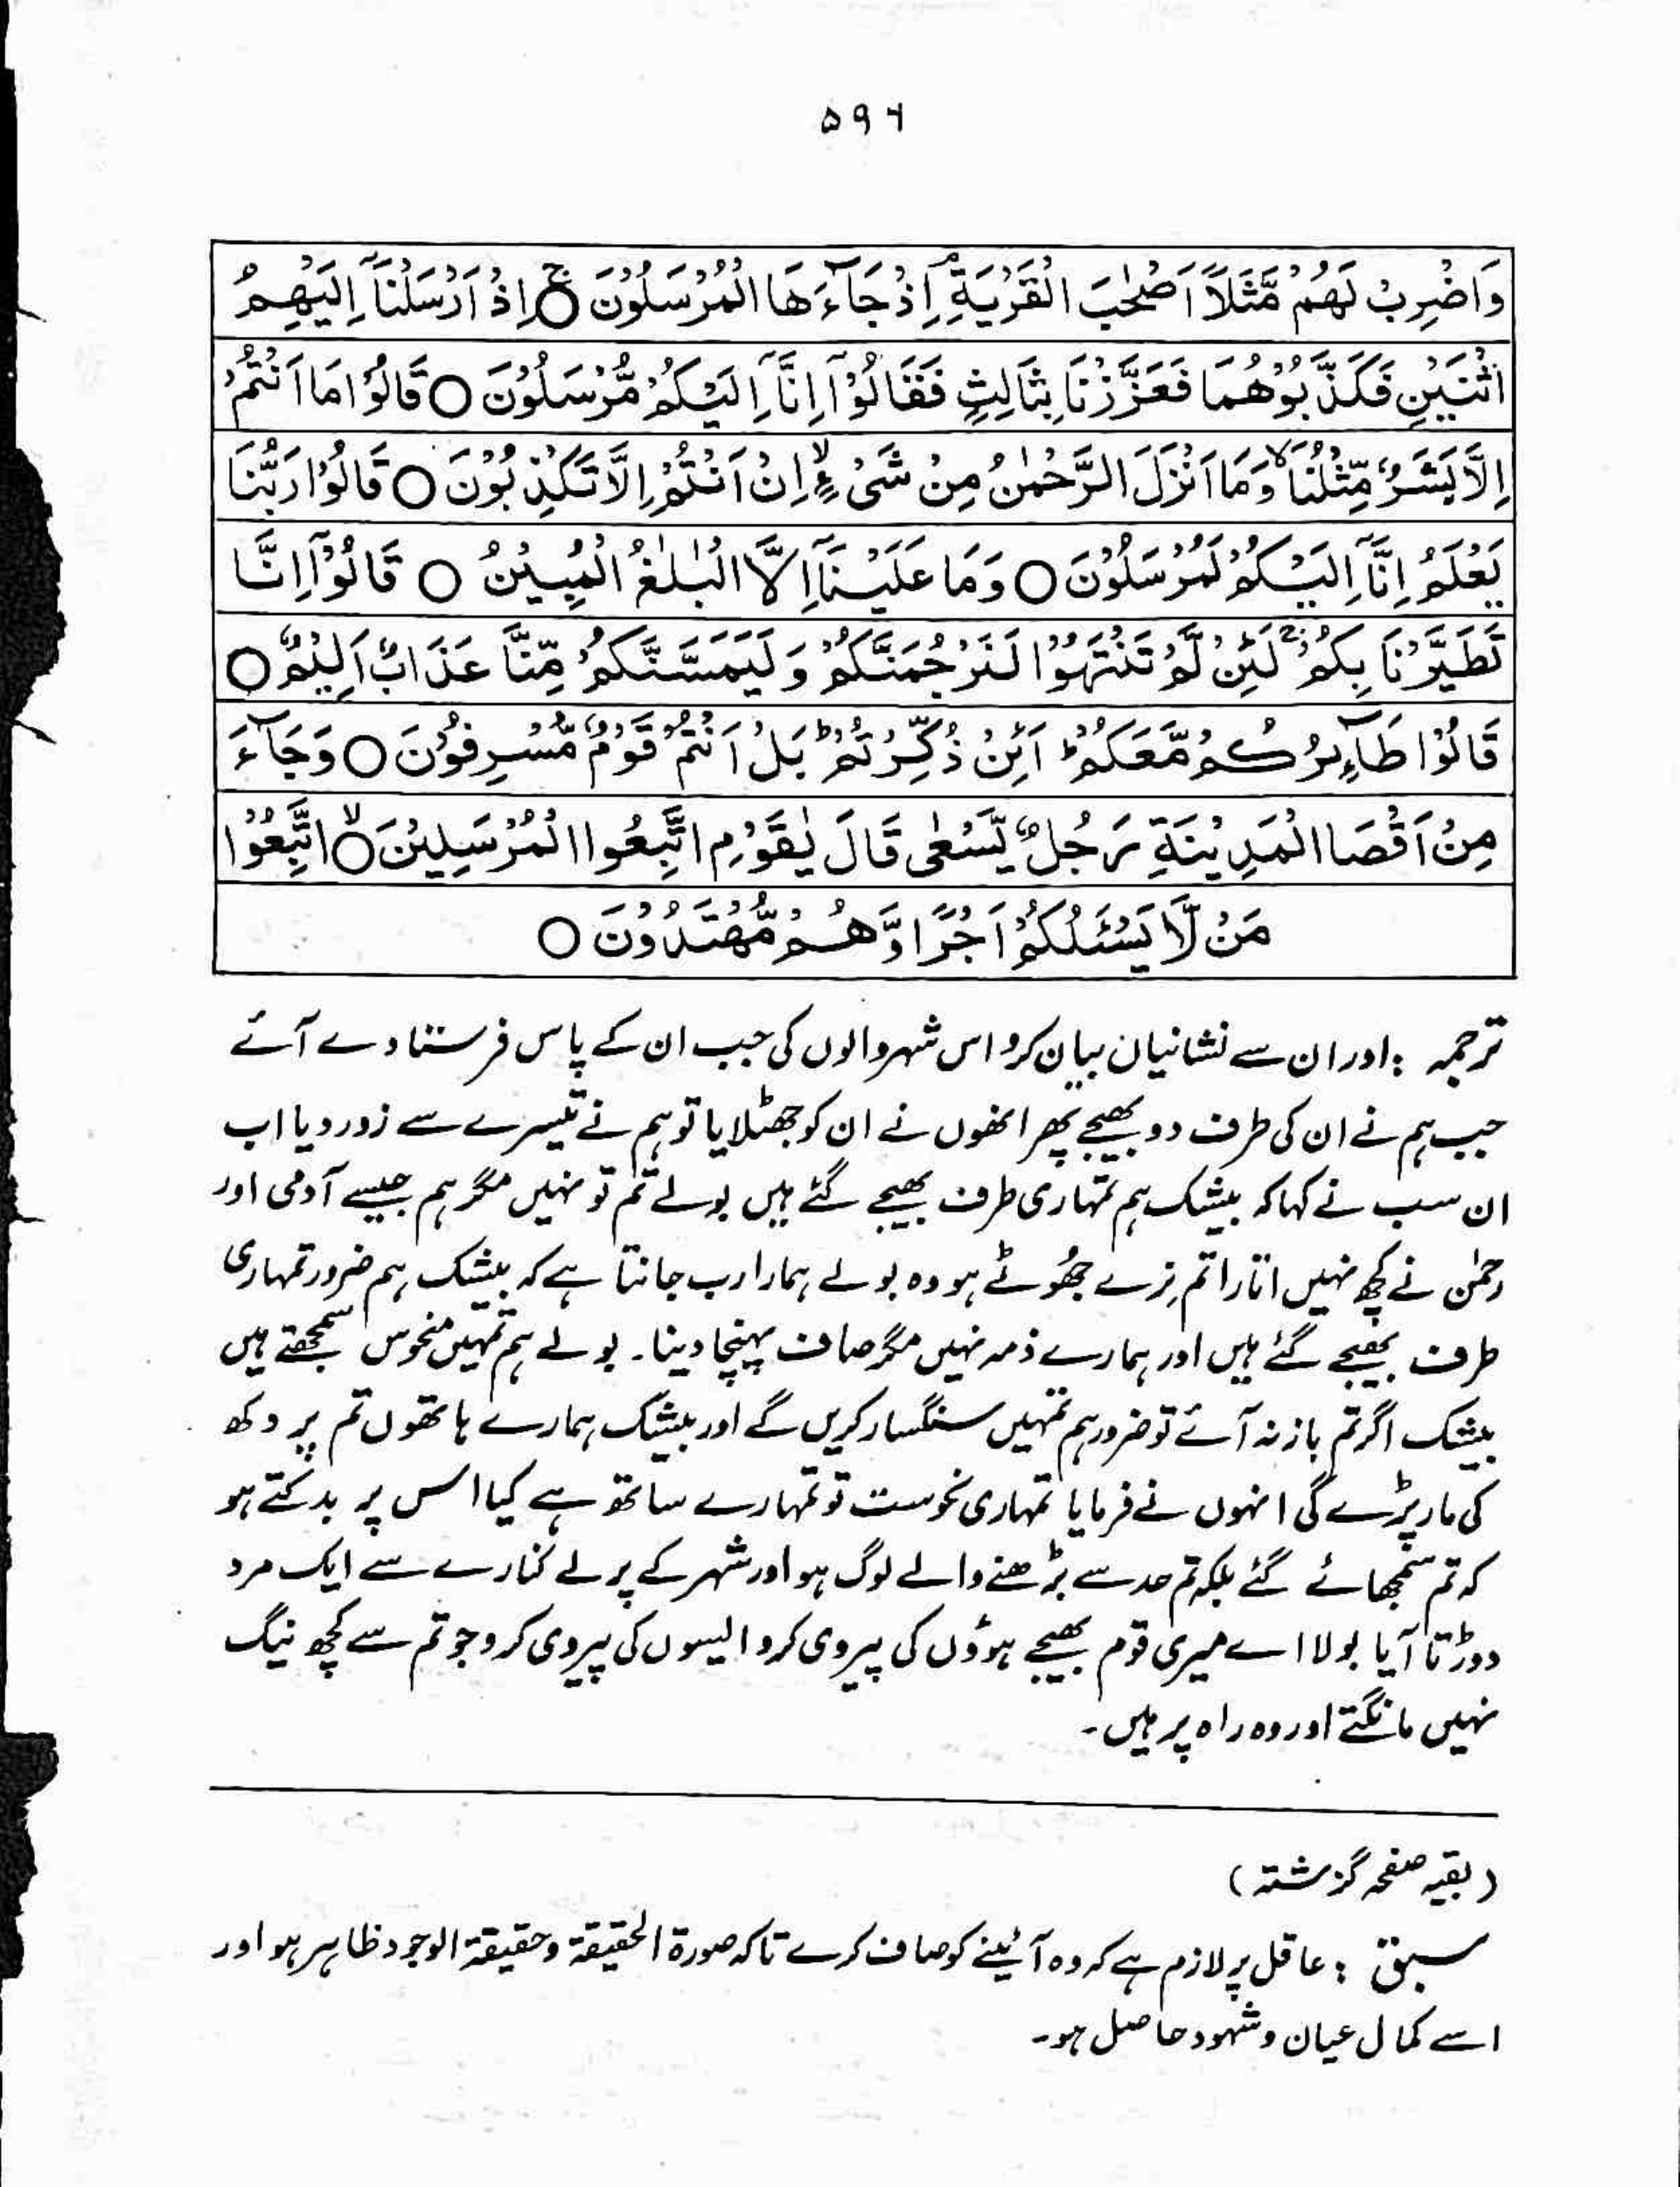 ۵۹۶
وَاضْرِبْ لَهُمْ مَّثَلًا اَصْحٰبَ الْقَرْیَةِ ۘ اِذْ جَآءَهَا الْمُرْسَلُوْنَ ○ۚ اِذْ اَرْسَلْنَاۤ اِلَیْهِمُ
اثْنَیْنِ فَكَذَّبُوْهُمَا فَعَزَّزْنَا بِثَالِثٍ فَقَالُوْۤا اِنَّاۤ اِلَیْكُمْ مُّرْسَلُوْنَ ○ قَالُوْا مَا اَنْتُمْ
اِلَّا بَشَرٌ مِّثْلُنَا ۙ وَمَا اَنْزَلَ الرَّحْمٰنُ مِنْ شَیْءٍ ۙ اِنْ اَنْتُمْ اِلَّا تَكْذِبُوْنَ ○ قَالُوْا رَبُّنَا
یَعْلَمُ اِنَّاۤ اِلَیْكُمْ لَمُرْسَلُوْنَ ○ وَمَا عَلَیْنَاۤ اِلَّا الْبَلٰغُ الْمُبِیْنُ ○ قَالُوْۤا اِنَّا
تَطَیَّرْنَا بِكُمْ ۚ لَئِنْ لَّمْ تَنْتَهُوْا لَنَرْجُمَنَّكُمْ وَلَیَمَسَّنَّكُمْ مِّنَّا عَذَابٌ اَلِیْمٌ ○
قَالُوْا طَآىِٕرُكُمْ مَّعَكُمْ ؕ اَئِنْ ذُكِّرْتُمْ ؕ بَلْ اَنْتُمْ قَوْمٌ مُّسْرِفُوْنَ ○ وَجَآءَ
مِنْ اَقْصَا الْمَدِیْنَةِ رَجُلٌ یَّسْعٰی قَالَ یٰقَوْمِ اتَّبِعُوا الْمُرْسَلِیْنَ ○ۙ اتَّبِعُوْا
مَنْ لَّا یَسْئَلُكُمْ اَجْرًا وَّهُمْ مُّهْتَدُوْنَ ○
ترجمہ : اور ان سے نشانیاں بیان کرو اس شہر والوں کی جب ان کے پاس فرستادے آئے
جب ہم نے ان کی طرف دو بھیجے پھر انھوں نے ان کو جھٹلایا تو ہم نے تیسرے سے زور دیا اب
ان سب نے کہا کہ بیشک ہم تمہاری طرف بھیجے گئے ہیں بولے تم تو نہیں مگر ہم جیسے آدمی اور
رحمٰن نے کچھ نہیں اتارا تم نِرے جھُوٹے ہو وہ بولے ہمارا رب جانتا ہے کہ بیشک ہم ضرور تمہاری
طرف بھیجے گئے ہیں اور ہمارے ذمہ نہیں مگر صاف پہنچا دینا۔ بولے ہم تمہیں منحوس سمجھتے ہیں
بیشک اگر تم باز نہ آئے تو ضرور ہم تمہیں سنگسار کریں گے اور بیشک ہمارے ہاتھوں تم پر دکھ
کی مار پڑے گی انہوں نے فرمایا تمہاری نحوست تو تمہارے ساتھ ہے کیا اس پر بدکتے ہو
کہ تم سمجھائے گئے بلکہ تم حد سے بڑھنے والے لوگ ہو اور شہر کے پرلے کنارے سے ایک مرد
دوڑتا آیا بولا اے میری قوم بھیجے ہوؤں کی پیروی کرو ایسوں کی پیروی کرو جو تم سے کچھ نیگ
نہیں مانگتے اور وہ راہ پر ہیں۔
(بقیہ صفحہ گزشتہ)
سبق : عاقل پر لازم ہے کہ وہ آئینے کو صاف کرے تاکہ صورۃ الحقیقۃ و حقیقۃ الوجود ظاہر ہو اور
اسے کمال عیان و شہود حاصل ہو۔